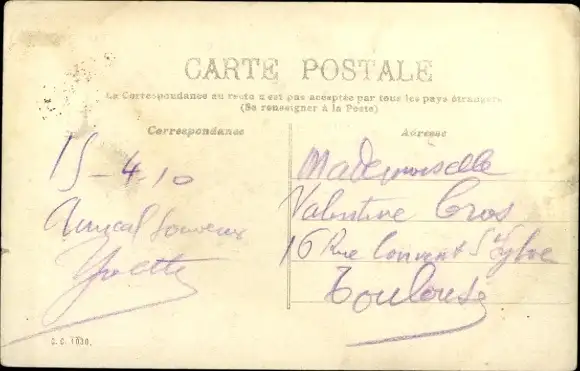 CARTE POSTALE
La Correspondance au recto n'est pas acceptée par tous les pays étrangers
(Se renseigner à la Poste)
Correspondance
Adresse
15-4-10
Amical Souvenir
Yvette
Mademoiselle
Valentine Cros
16 Rue Couvent St
Toulouse
C.C. 1030.